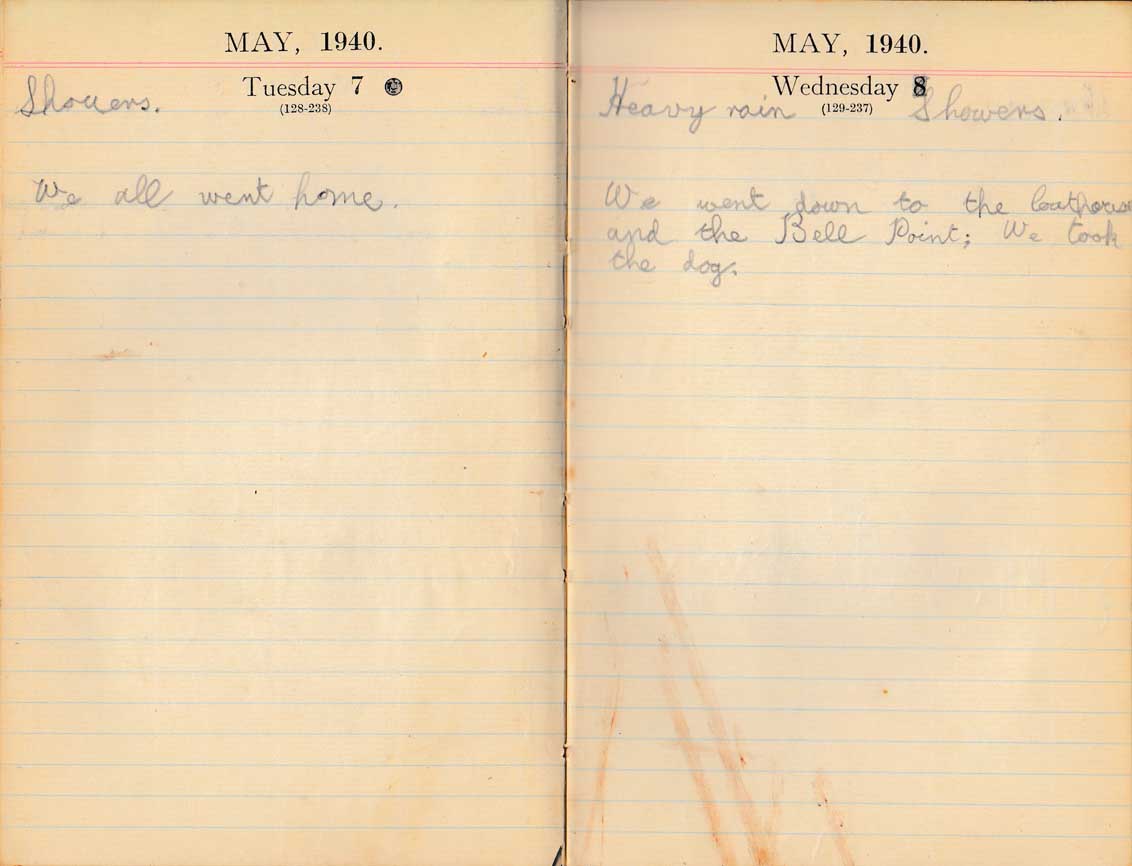 MAY, 1940.
Tuesday 7
(128-238)
Showers.
We all went home.
MAY, 1940.
Wednesday 8
(129-237)
Heavy rain Showers.
We went down to the boathouse
and the Bell Point; We took
the dog.